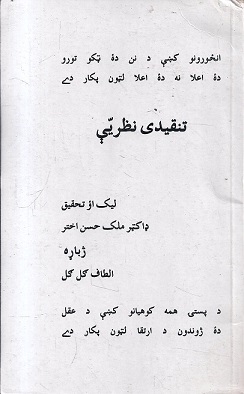 انځورونو کښې د نن دۀ ټکو تورو
دۀ اعلا نه دۀ اعلا لټون پکار دے
تنقیدی نظریّې
لیک اؤ تحقیق
ډاکټر ملک حسن اختر
ژباړه
الطاف ګل ګل
د پستی همه کوهیانو کښې د عقل
دۀ ژوندون د ارتقا لټون پکار دے